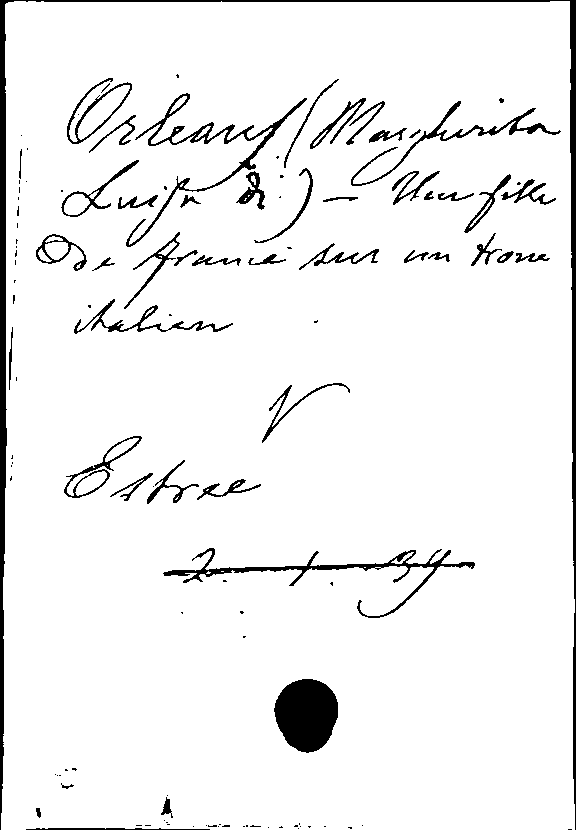 Orleans (Margherita
Luisa di) – Une fille
de France sur un trone
italien
V
Estree
2. 1. 34